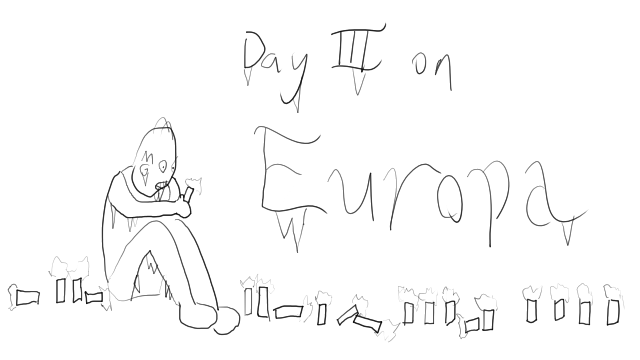 Day III on
Europa